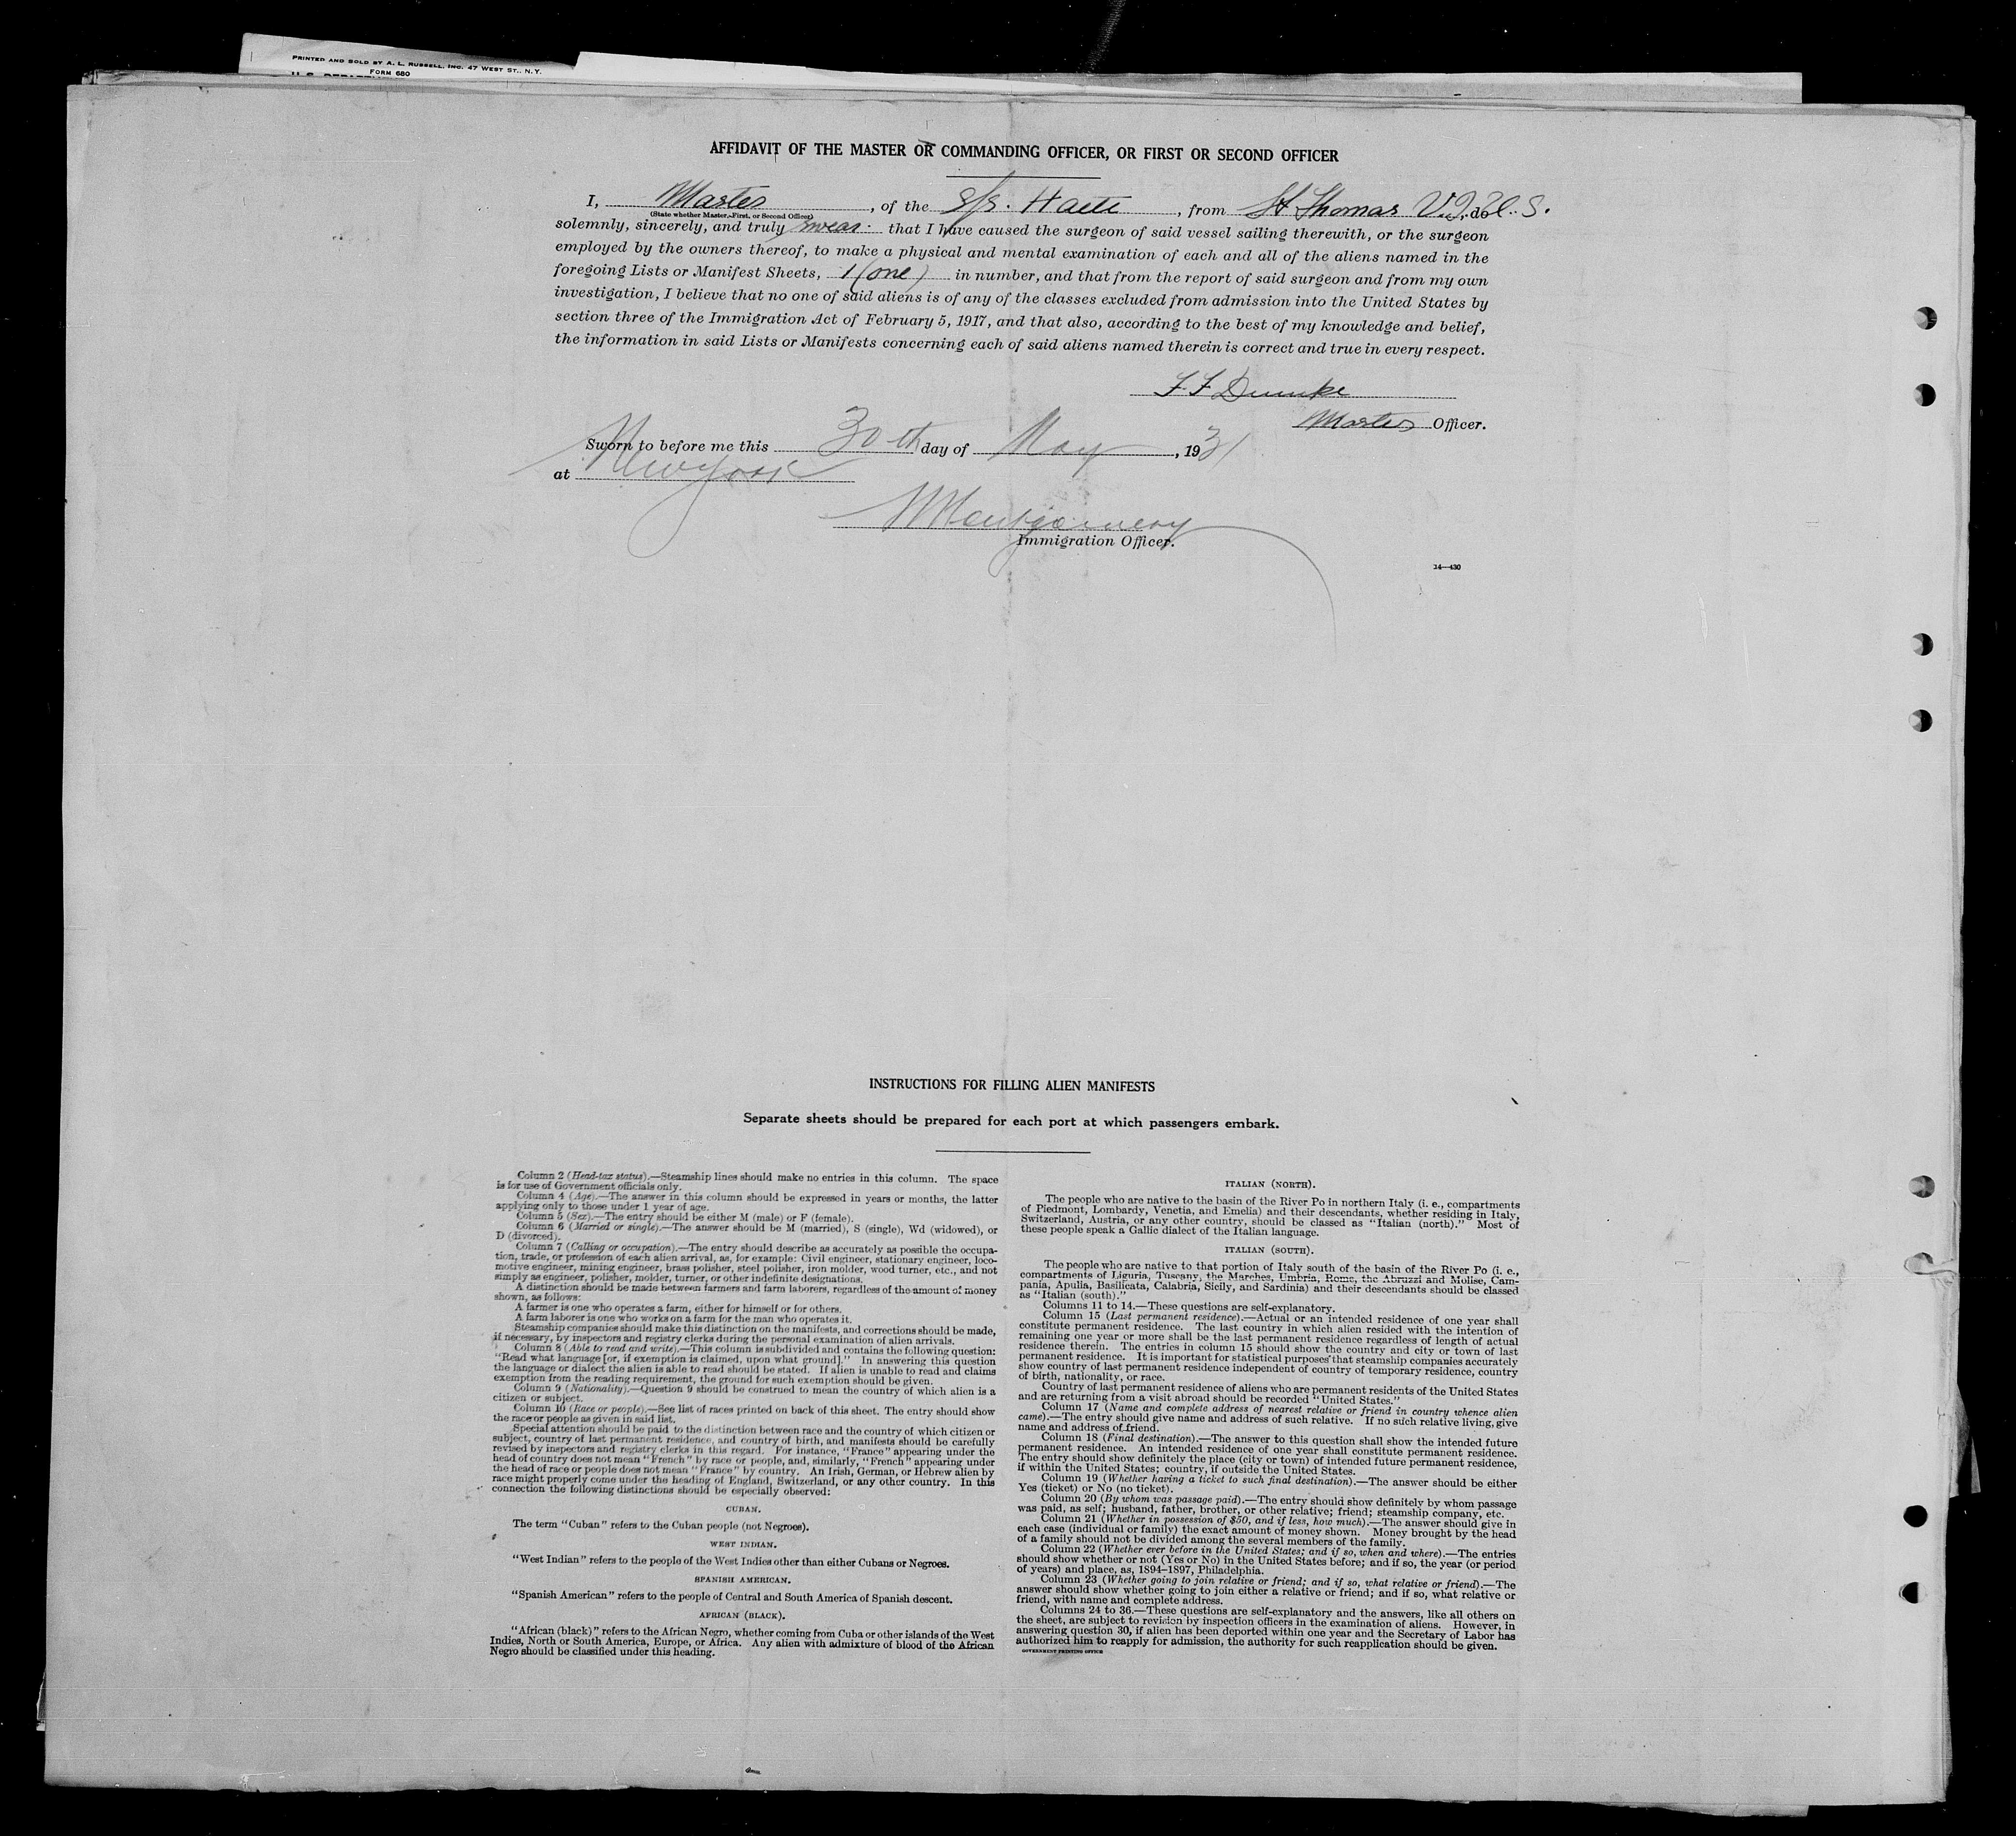 PRINTED AND SOLD BY A. L. RUSSELL, INC. 47 WEST ST., N.Y.
FORM 680
AFFIDAVIT OF THE MASTER OR COMMANDING OFFICER, OR FIRST OR SECOND OFFICER
I, Master, of the S/S. Haiti, from St Thomas V.I. U.S., do
(State whether Master, First, or Second Officer)
solemnly, sincerely, and truly swear that I have caused the surgeon of said vessel sailing therewith, or the surgeon
employed by the owners thereof, to make a physical and mental examination of each and all of the aliens named in the
foregoing Lists or Manifest Sheets, 1 (one) in number, and that from the report of said surgeon and from my own
investigation, I believe that no one of said aliens is of any of the classes excluded from admission into the United States by
section three of the Immigration Act of February 5, 1917, and that also, according to the best of my knowledge and belief,
the information in said Lists or Manifests concerning each of said aliens named therein is correct and true in every respect.
F F Dumke
Master Officer.
Sworn to before me this 30th day of May, 1931
at New York
Montgomery
Immigration Officer.
14—430
INSTRUCTIONS FOR FILLING ALIEN MANIFESTS
Separate sheets should be prepared for each port at which passengers embark.
Column 2 (Head-tax status).—Steamship lines should make no entries in this column. The space
is for use of Government officials only.
Column 4 (Age).—The answer in this column should be expressed in years or months, the latter
applying only to those under 1 year of age.
Column 5 (Sex).—The entry should be either M (male) or F (female).
Column 6 (Married or single).—The answer should be M (married), S (single), Wd (widowed), or
D (divorced).
Column 7 (Calling or occupation).—The entry should describe as accurately as possible the occupa-
tion, trade, or profession of each alien arrival, as, for example: Civil engineer, stationary engineer, loco-
motive engineer, mining engineer, brass polisher, steel polisher, iron molder, wood turner, etc., and not
simply as engineer, polisher, molder, turner, or other indefinite designations.
A distinction should be made between farmers and farm laborers, regardless of the amount of money
shown, as follows:
A farmer is one who operates a farm, either for himself or for others.
A farm laborer is one who works on a farm for the man who operates it.
Steamship companies should make this distinction on the manifests, and corrections should be made,
if necessary, by inspectors and registry clerks during the personal examination of alien arrivals.
Column 8 (Able to read and write).—This column is subdivided and contains the following question:
"Read what language [or, if exemption is claimed, upon what ground]." In answering this question
the language or dialect the alien is able to read should be stated. If alien is unable to read and claims
exemption from the reading requirement, the ground for such exemption should be given.
Column 9 (Nationality).—Question 9 should be construed to mean the country of which alien is a
citizen or subject.
Column 10 (Race or people).—See list of races printed on back of this sheet. The entry should show
the race or people as given in said list.
Special attention should be paid to the distinction between race and the country of which citizen or
subject, country of last permanent residence, and country of birth, and manifests should be carefully
revised by inspectors and registry clerks in this regard. For instance, "France" appearing under the
head of country does not mean "French" by race or people, and, similarly, "French" appearing under
the head of race or people does not mean "France" by country. An Irish, German, or Hebrew alien by
race might properly come under the heading of England, Switzerland, or any other country. In this
connection the following distinctions should be especially observed:
CUBAN.
The term "Cuban" refers to the Cuban people (not Negroes).
WEST INDIAN.
"West Indian" refers to the people of the West Indies other than either Cubans or Negroes.
SPANISH AMERICAN.
"Spanish American" refers to the people of Central and South America of Spanish descent.
AFRICAN (BLACK).
"African (black)" refers to the African Negro, whether coming from Cuba or other islands of the West
Indies, North or South America, Europe, or Africa. Any alien with admixture of blood of the African
Negro should be classified under this heading.
ITALIAN (NORTH).
The people who are native to the basin of the River Po in northern Italy (i. e., compartments
of Piedmont, Lombardy, Venetia, and Emelia) and their descendants, whether residing in Italy,
Switzerland, Austria, or any other country, should be classed as "Italian (north)." Most of
these people speak a Gallic dialect of the Italian language.
ITALIAN (SOUTH).
The people who are native to that portion of Italy south of the basin of the River Po (i. e.,
compartments of Liguria, Tuscany, the Marches, Umbria, Rome, the Abruzzi and Molise, Cam-
pania, Apulia, Basilicata, Calabria, Sicily, and Sardinia) and their descendants should be classed
as "Italian (south)."
Columns 11 to 14.—These questions are self-explanatory.
Column 15 (Last permanent residence).—Actual or an intended residence of one year shall
constitute permanent residence. The last country in which alien resided with the intention of
remaining one year or more shall be the last permanent residence regardless of length of actual
residence therein. The entries in column 15 should show the country and city or town of last
permanent residence. It is important for statistical purposes that steamship companies accurately
show country of last permanent residence independent of country of temporary residence, country
of birth, nationality, or race.
Country of last permanent residence of aliens who are permanent residents of the United States
and are returning from a visit abroad should be recorded "United States."
Column 17 (Name and complete address of nearest relative or friend in country whence alien
came).—The entry should give name and address of such relative. If no such relative living, give
name and address of friend.
Column 18 (Final destination).—The answer to this question shall show the intended future
permanent residence. An intended residence of one year shall constitute permanent residence.
The entry should show definitely the place (city or town) of intended future permanent residence,
if within the United States; country, if outside the United States.
Column 19 (Whether having a ticket to such final destination).—The answer should be either
Yes (ticket) or No (no ticket).
Column 20 (By whom was passage paid).—The entry should show definitely by whom passage
was paid, as self; husband, father, brother, or other relative; friend; steamship company, etc.
Column 21 (Whether in possession of $50, and if less, how much).—The answer should give in
each case (individual or family) the exact amount of money shown. Money brought by the head
of a family should not be divided among the several members of the family.
Column 22 (Whether ever before in the United States; and if so, when and where).—The entries
should show whether or not (Yes or No) in the United States before; and if so, the year (or period
of years) and place, as, 1894–1897, Philadelphia.
Column 23 (Whether going to join relative or friend; and if so, what relative or friend).—The
answer should show whether going to join either a relative or friend; and if so, what relative or
friend, with name and complete address.
Columns 24 to 36.—These questions are self-explanatory and the answers, like all others on
the sheet, are subject to revision by inspection officers in the examination of aliens. However, in
answering question 30, if alien has been deported within one year and the Secretary of Labor has
authorized him to reapply for admission, the authority for such reapplication should be given.
GOVERNMENT PRINTING OFFICE